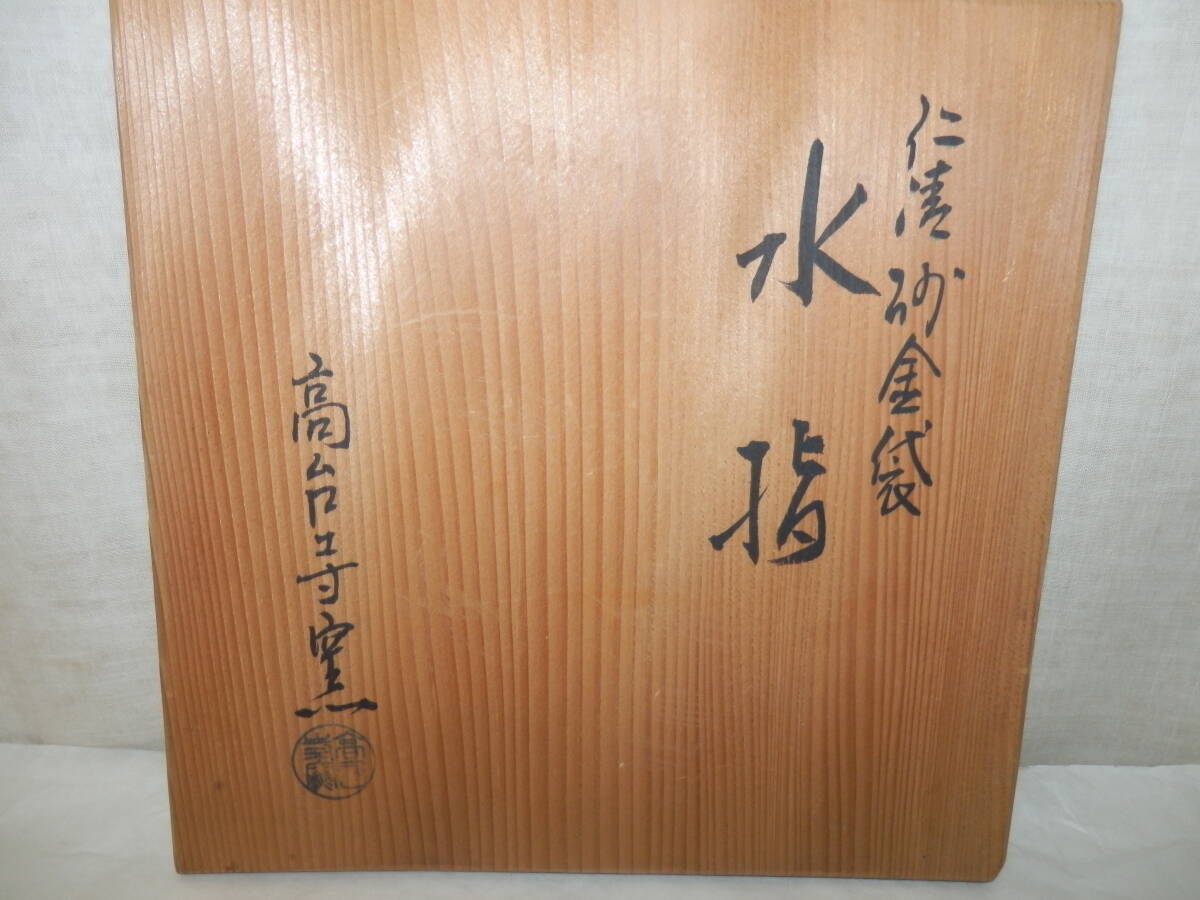 仁清 砂金袋
水指
高台寺窯